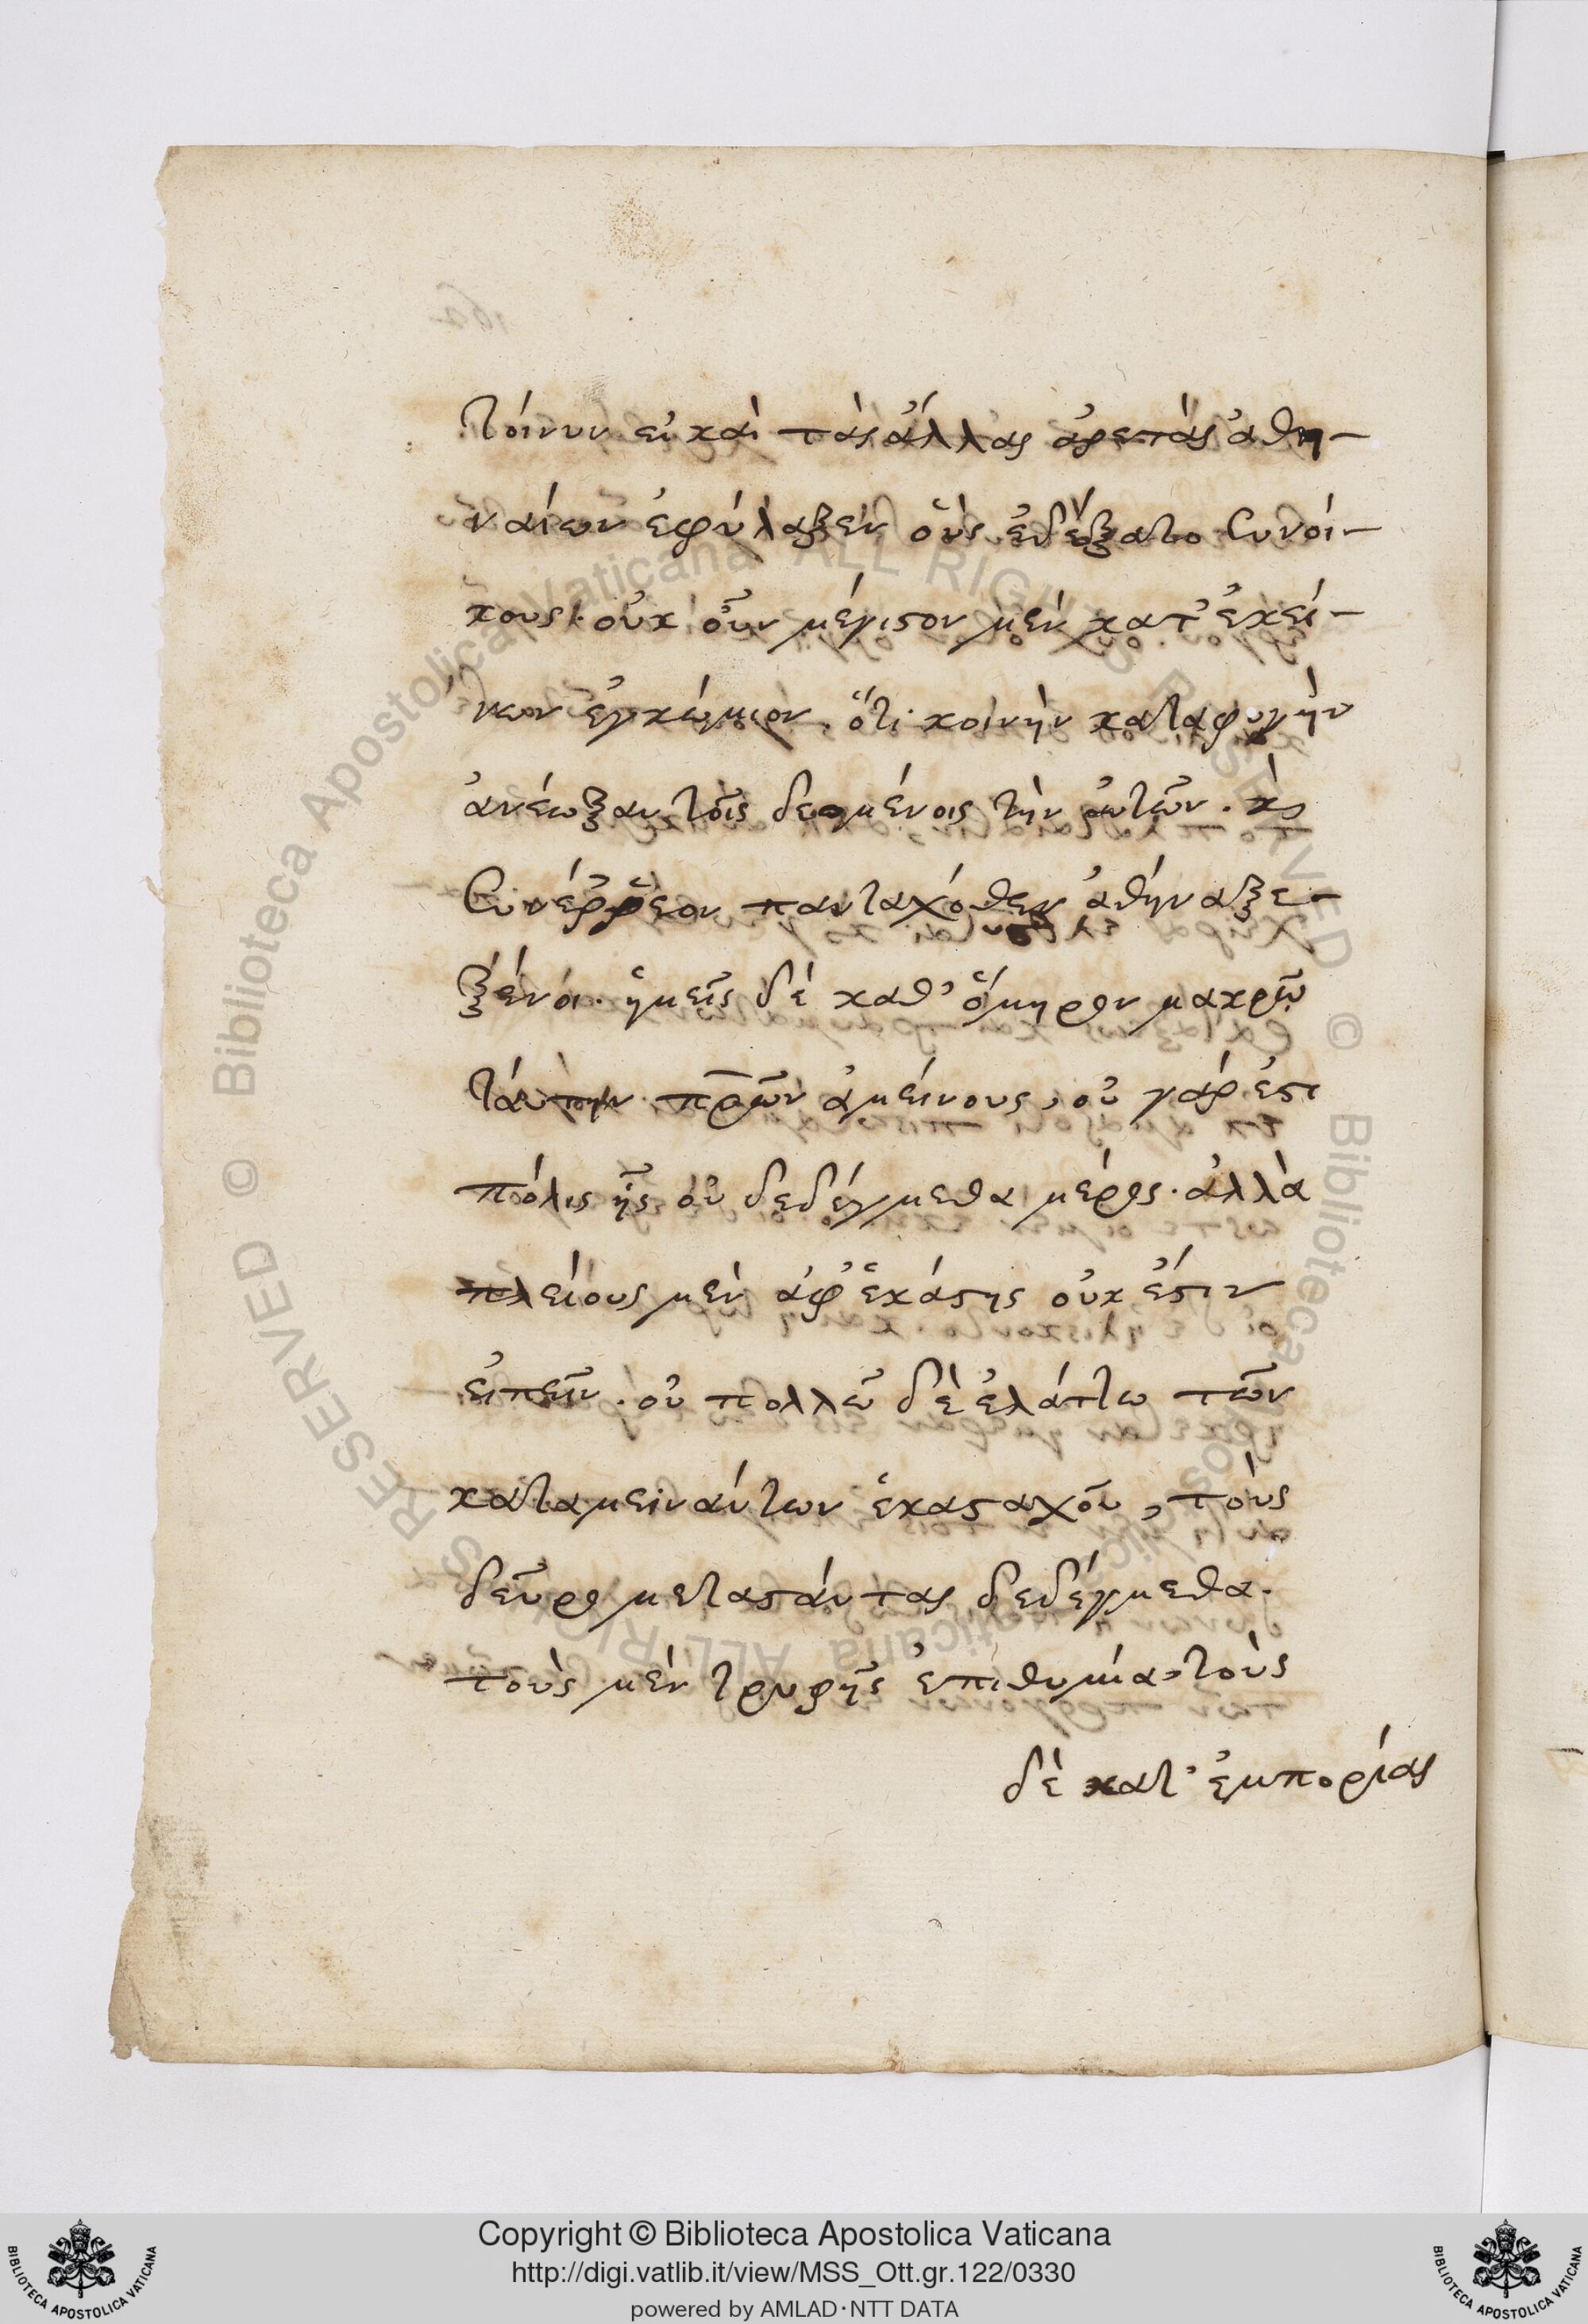 τοίνυν εἰ καὶ τὰς ἄλλας ἀρετὰς ἀθη-
ναίων ἐφύλαξεν οὓς ἐδέξατο συνοί-
κους. οὐκ οὖν μέγιστον μὲν κατ' ἐκεί-
νων ἐγκώμιον, ὅτι κοινὴν καταφυγὴν
ἀνέωξαν τοῖς δεομένοις τὴν αὐτῶν. καὶ
συνέρρεον πανταχόθεν ἀθήναζε
ξένοι. ἡμεῖς δὲ καθ' ὅμηρον μακρῷ
ταύτην πρῶν ἀμείνους, οὐ γάρ ἐστι
πόλις ἧς οὐ δεδέγμεθα μέρος. ἀλλὰ
πλείους μὲν ἀφ' ἑκάστης οὐκ ἔστιν
εἰπεῖν. οὐ πολλῶ δὲ ἐλάττω τῶν
καταμεινάντων ἑκασταχοῦ, τοὺς
δεῦρο μεταστάντας δεδέγμεθα.
τοὺς μὲν τρυφῆς ἐπιθυμία, τοὺς
δὲ κατ' ἐμπορίας
© Biblioteca Apostolica Vaticana ALL RIGHTS RESERVED
© Biblioteca Apostolica Vaticana ALL RIGHTS RESERVED
BIBLIOTECA APOSTOLICA VATICANA
Copyright © Biblioteca Apostolica Vaticana
http://digi.vatlib.it/view/MSS_Ott.gr.122/0330
powered by AMLAD·NTT DATA
BIBLIOTECA APOSTOLICA VATICANA